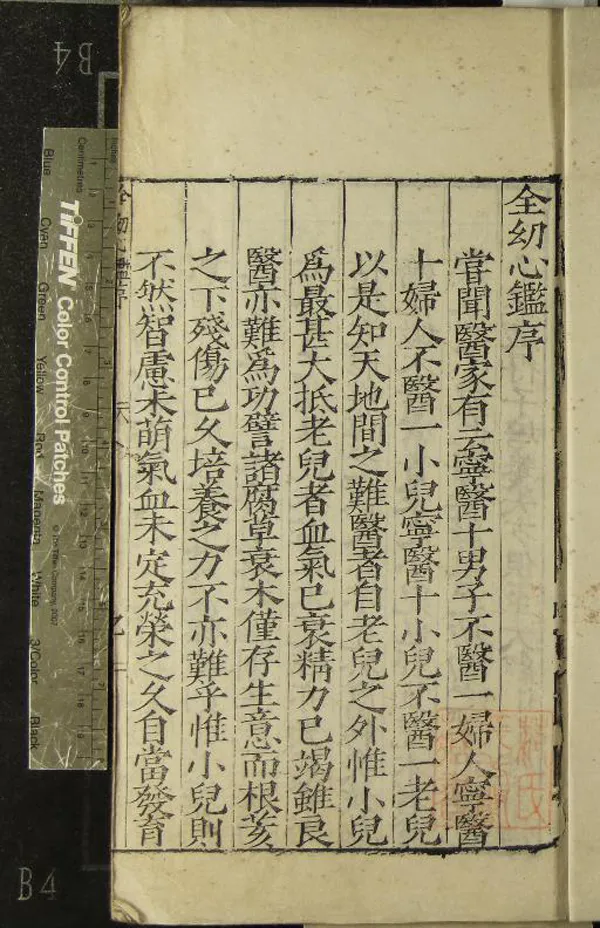 全幼心鑑序
甞聞醫家有云寧醫十男子不醫一婦人寧醫
十婦人不醫一小兒寧醫十小兒不醫一老兒
以是知天地間之難醫者自老兒之外惟小兒
爲最甚大抵老兒者血氣已衰精力已竭雖良
醫亦難爲功譬諸腐草衰木僅存生意而根荄
之下殘傷已久培養之力不亦難乎惟小兒則
不然智慮未萌氣血未定充榮之久自當發育
全幼心鑑序
B4
B4
TIFFEN Color Control Patches
© The Tiffen Company, 2007
Centimetres
Blue
Cyan
Green
Yellow
Red
Magenta
White
3/Color
Black